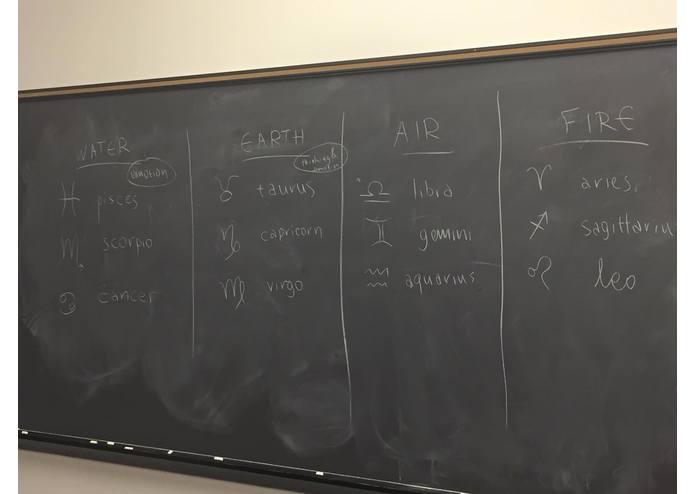 WATER
emotion
♓ pisces
♏ scorpio
♋ cancer
EARTH
♉ taurus
♑ capricorn
♍ virgo
AIR
♎ libra
♊ gemini
♒ aquarius
FIRE
♈ aries
♐ sagittariu
♌ leo